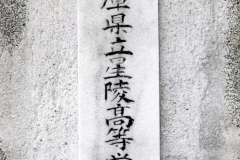 庫県立星陵高等学